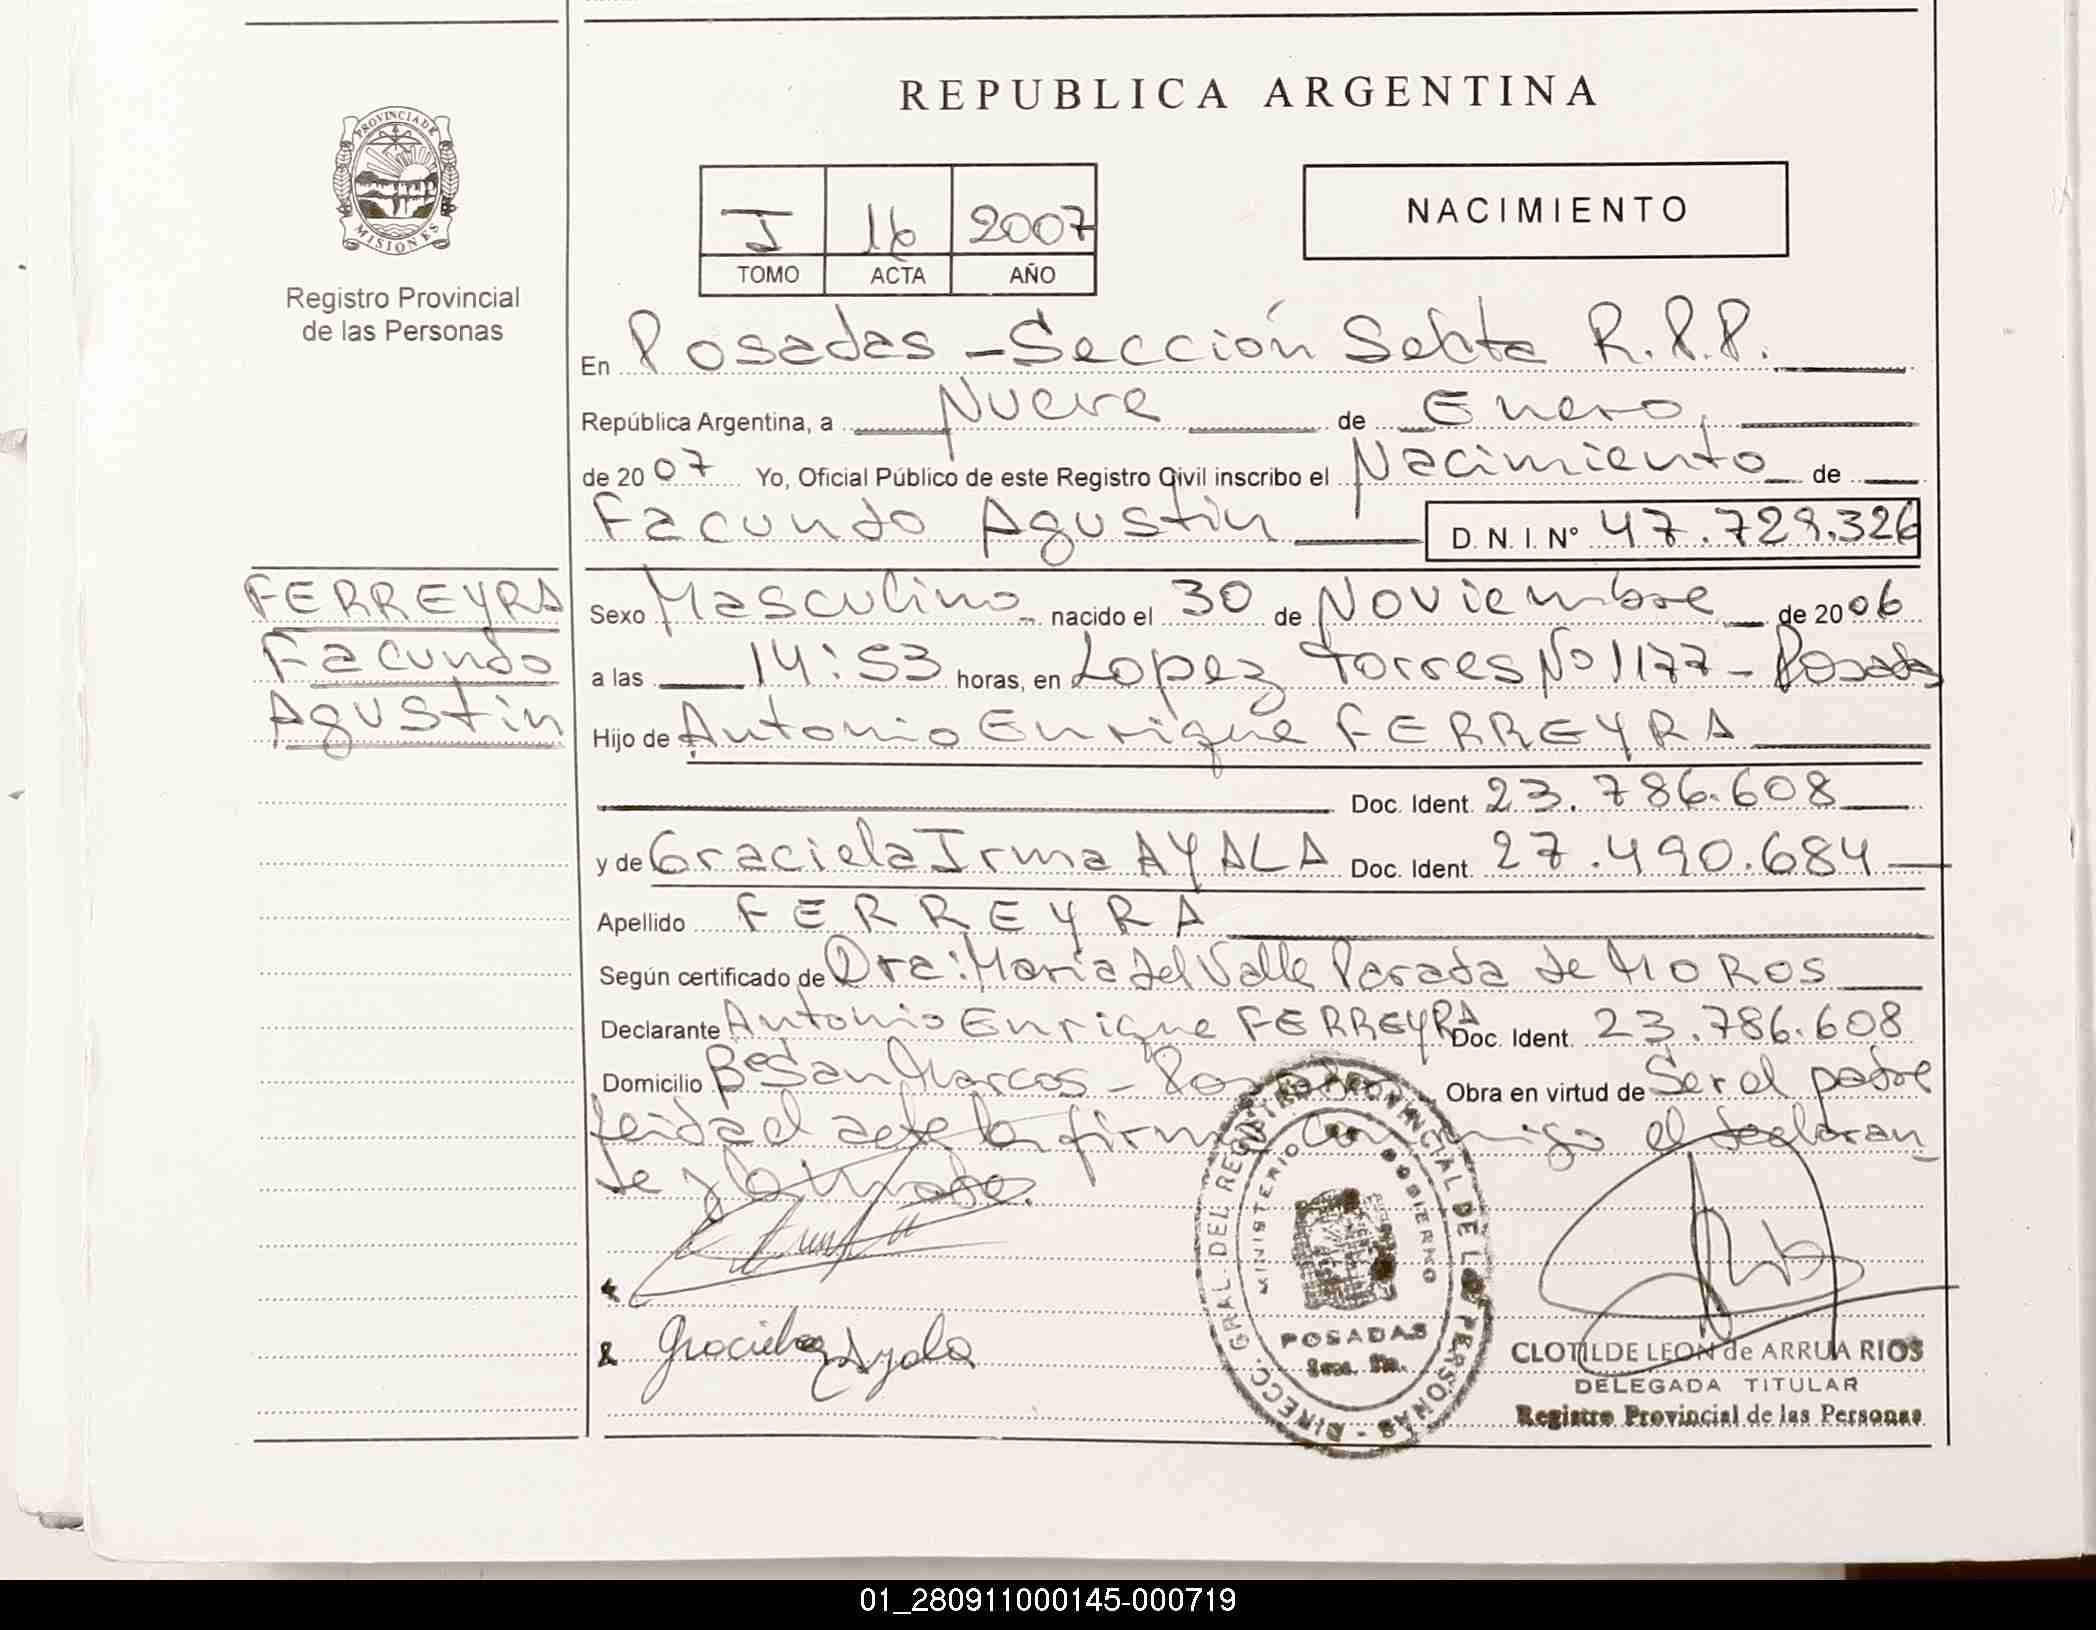 REPUBLICA ARGENTINA
PROVINCIA DE MISIONES
Registro Provincial
de las Personas
I 16 2007
TOMO ACTA AÑO
NACIMIENTO
En Posadas - Sección Sexta R.P.P.
República Argentina, a Nueve de Enero,
de 2007 Yo, Oficial Público de este Registro Civil inscribo el Nacimiento de
Facundo Agustin D. N. I. Nº 47.729.326
FERREYRA
Facundo
Agustin
Sexo Masculino nacido el 30 de Noviembre de 2006
a las 14:53 horas, en Lopez Torres Nº 1177 - Posadas
Hijo de Antonio Enrique FERREYRA
Doc. Ident. 23.786.608
y de Graciela Irma AYALA Doc. Ident. 27.490.684
Apellido FERREYRA
Según certificado de Dra: Maria del Valle Parada de MOROS
Declarante Antonio Enrique FERREYRA Doc. Ident. 23.786.608
Domicilio Bº San Marcos - Posadas Obra en virtud de Ser el padre
leida el acta la firma conmigo el declaran
te y la madre.
Graciela Ayala
DIRECC. GRAL. DEL REGISTRO PROVINCIAL DE LAS PERSONAS
MINISTERIO DE GOBIERNO
POSADAS
Secc. 6ta.
CLOTILDE LEON de ARRUA RIOS
DELEGADA TITULAR
Registro Provincial de las Personas
01_280911000145-000719